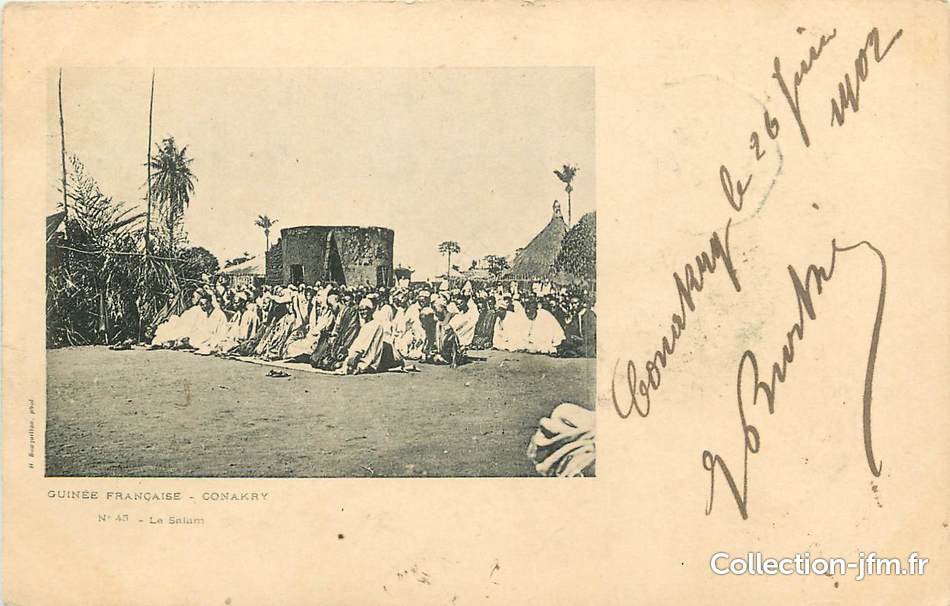 Conakry le 26 Juin
1902
H. Bouquillon, phot
GUINÉE FRANÇAISE - CONAKRY
N° 45 - Le Salam
Collection-jfm.fr